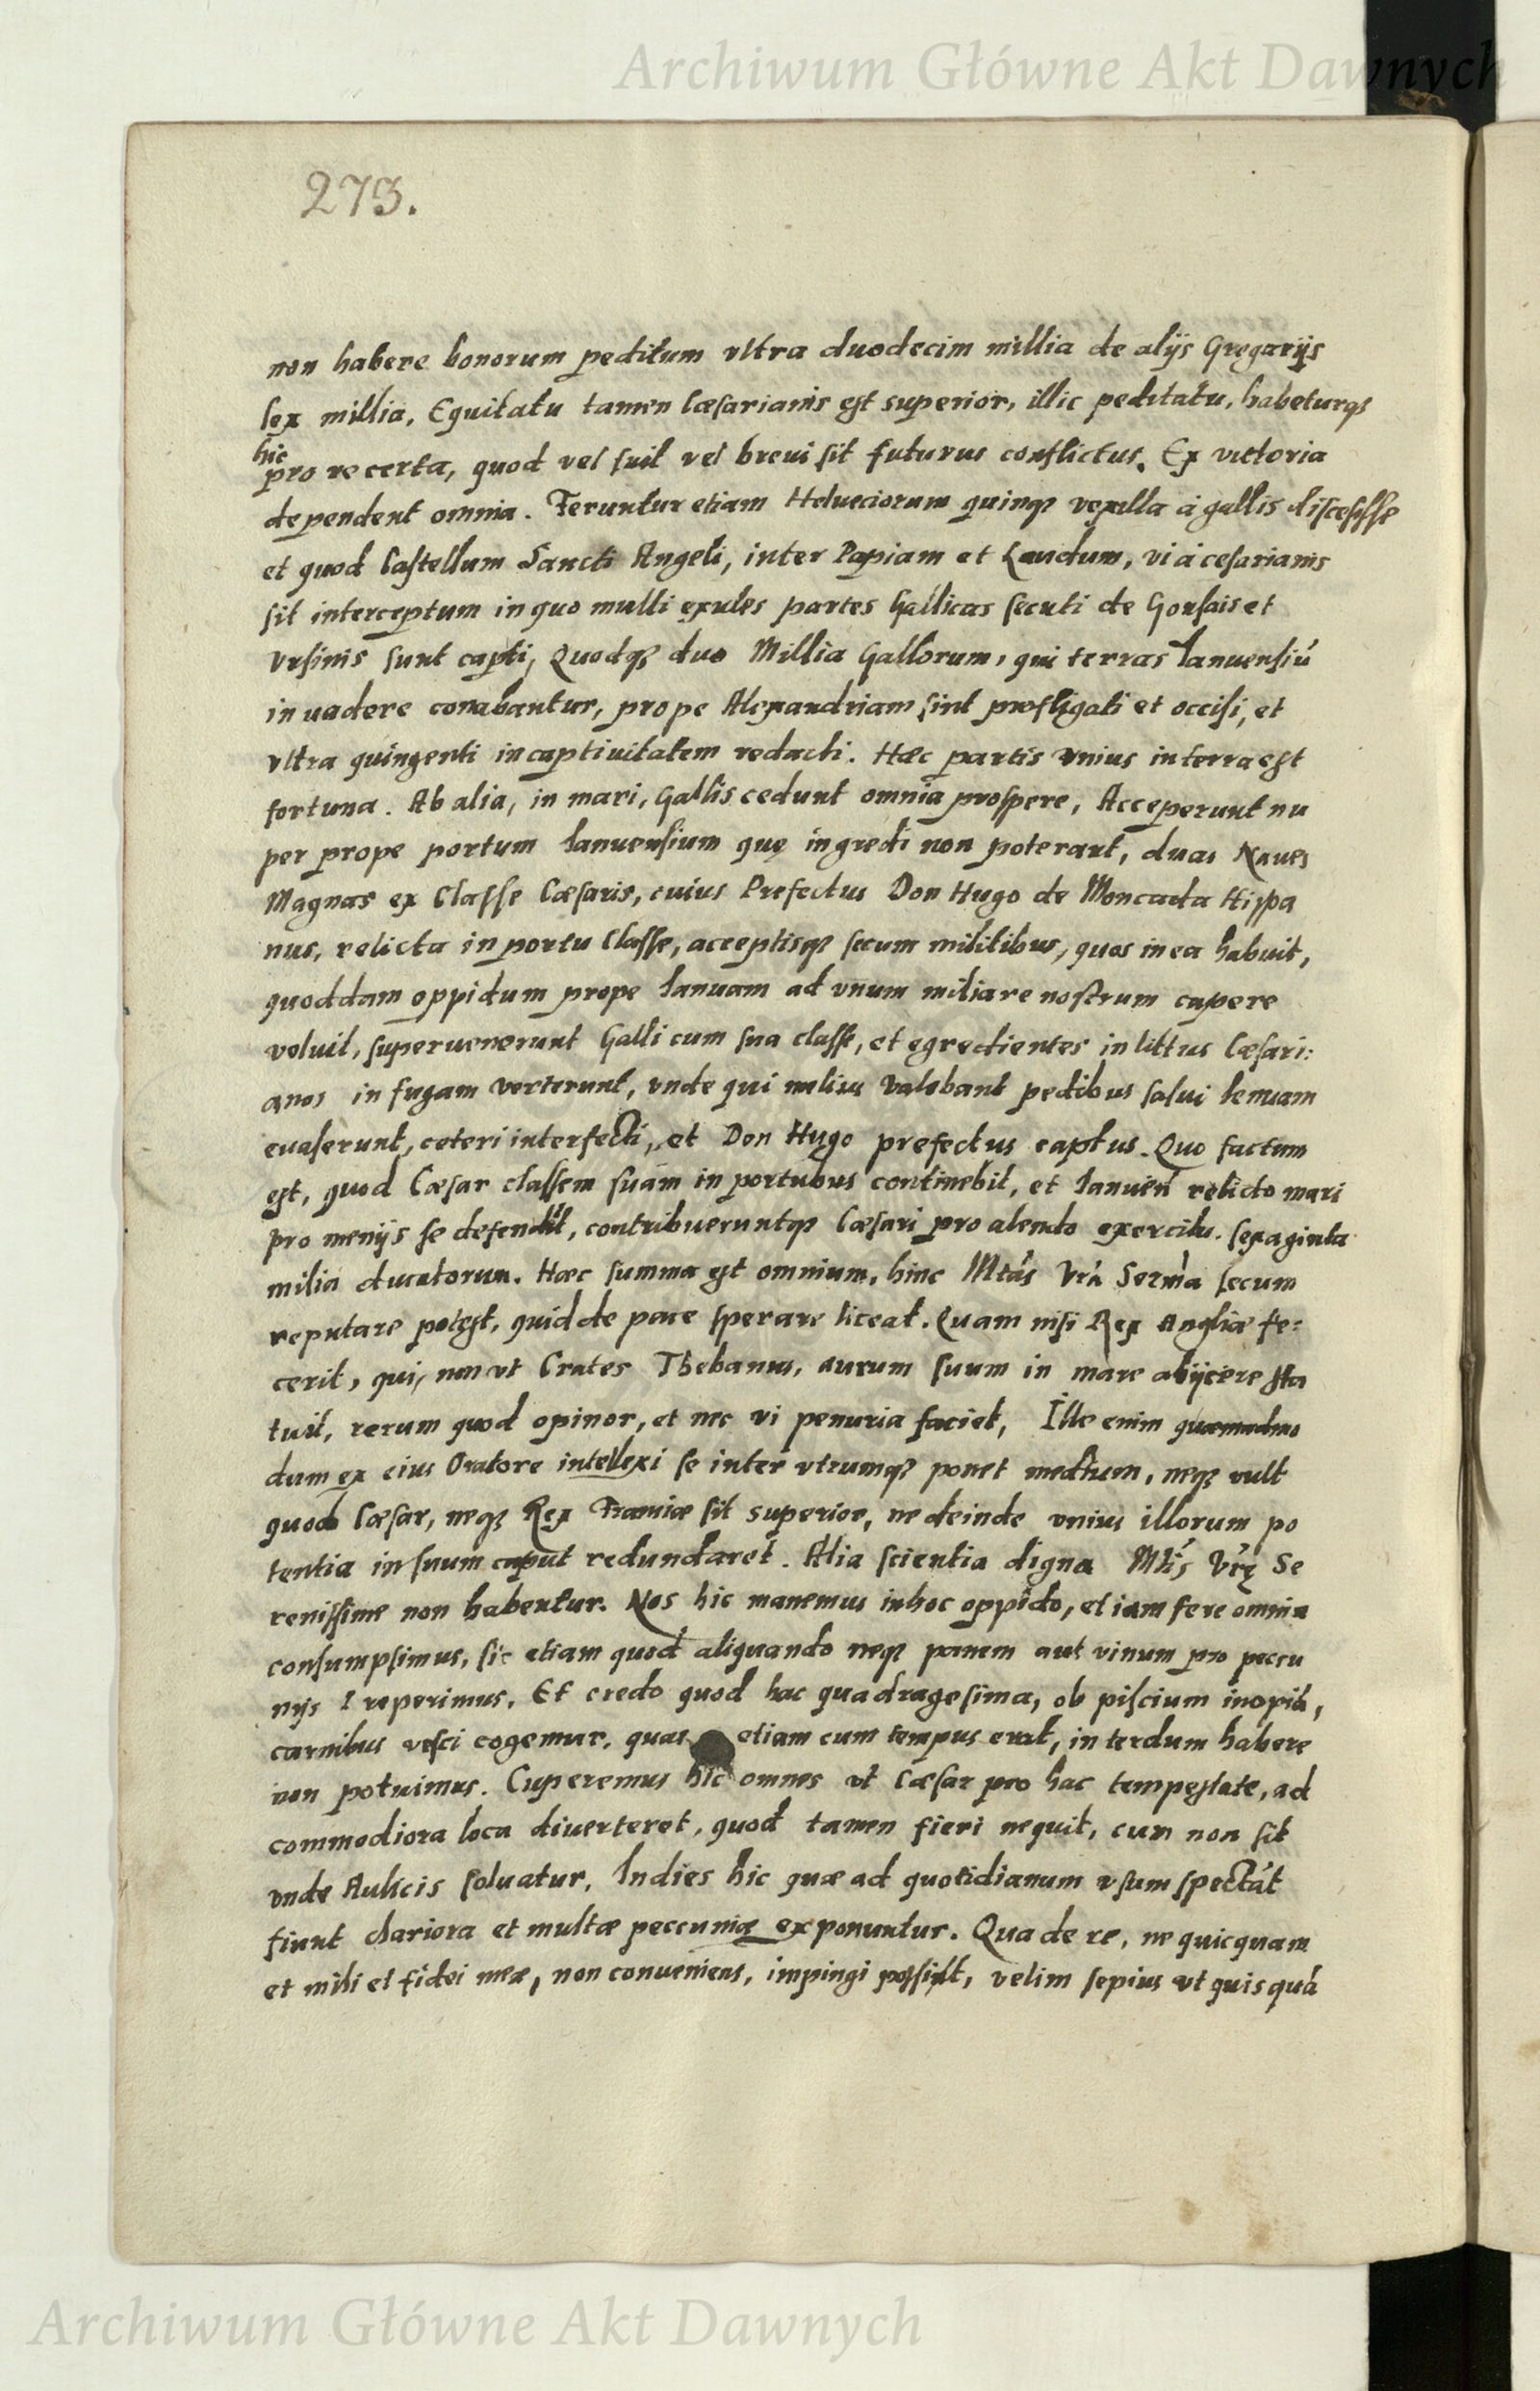 Archiwum Główne Akt Dawnych
273.
non habere bonorum peditum vltra duodecim millia de alijs Gregarijs
sex millia, Equitatu tamen Cæsarianis est superior, illic peditatu, habeturq3
hic
pro re certa, quod vel fuit vel breui sit futurus conflictus. Ex victoria
dependent omnia. Feruntur etiam Helueciorum quinq3 vexilla à gallis discesisse
et quod Castellum Sancti Angeli, inter Papiam et Laudum, vi à cesarianis
sit interceptum in quo multi exules partes Gallicas secuti de Gonsais et
Vrsinis sunt capti, Quodq3 duo Millia Gallorum, qui terras Ianuensiú
in uadere conabantur, prope Alexandriam sint profligati et occisi, et
vltra quingenti in captiuitatem redacti. Hæc partis vnius in terra est
fortuna. Ab alia, in mari, Gallis cedunt omnia prospere, Acceperunt nu
per prope portum Ianuensium quę ingredi non poterant, duas Naues
Magnas ex Classe Cæsaris, cuius Prefectus Don Hugo de Moncada Hispa
nus, relicta in portu Classe, acceptisq3 secum militibus, quos in ea habuit,
quoddam oppidum prope Ianuam ad vnum miliare nostrum capere
voluit, superuenerunt Galli cum sua classe, et egredientes in littus Cæsari:
anos in fugam verterunt, vnde qui melius valebant pedibus salui Ienuam
euaserunt, ceteri interfecti, et Don Hugo prefectus captus. Quo factum
est, quod Cæsar classem suam in portubus continebit, et Ianuen relicto mari
pro menijs se defendit, contribueruntq3 Cæsari pro alendo exercitu. sexaginta
milia ducatorum. Hæc summa est omnium, hinc Mtás Vrà Sermà secum
reputare potest, quid de pace sperare liceat. Quam nisi Rex Angliæ fe:
cerit, qui, non vt Crates Thebanus, aurum suum in mare abijcere sta
tuit, rerum quod opinor, et nec vi penuria faciet, Ille enim quemadmo
dum ex eius Oratore intellexi se inter vtrumq3 ponet medium, neq3 vult
quod Cæsar, neq3 Rex Franciæ sit superior, ne deinde vnius illorum po
tentia in suum caput redundaret. Alia scientia digna Mtis Vrę Se
renissime non habentur. Nos hic manemus in hoc oppido, et iam fere omnia
consumpsimus, sic etiam quod aliquando neq3 panem aut vinum pro peccu
nijs reperimus, Et credo quod hac quadragesima, ob piscium inopiá,
carnibus vesci cogemur, quas etiam cum tempus erat, in terdum habere
non potuimus. Cuperemus hic omnes vt Cæsar pro hac tempestate, ad
commodiora loca diuerteret, quod tamen fieri nequit, cum non sit
vnde Aulicis soluatur, Indies hic quæ ad quotidianum vsum spectát
fiunt chariora et multæ peccuniæ exponuntur. Qua de re, ne quicquam
et mihi et fidei meæ, non conueniens, impingi possint, velim sepius vt quisquá
Archiwum Główne Akt Dawnych